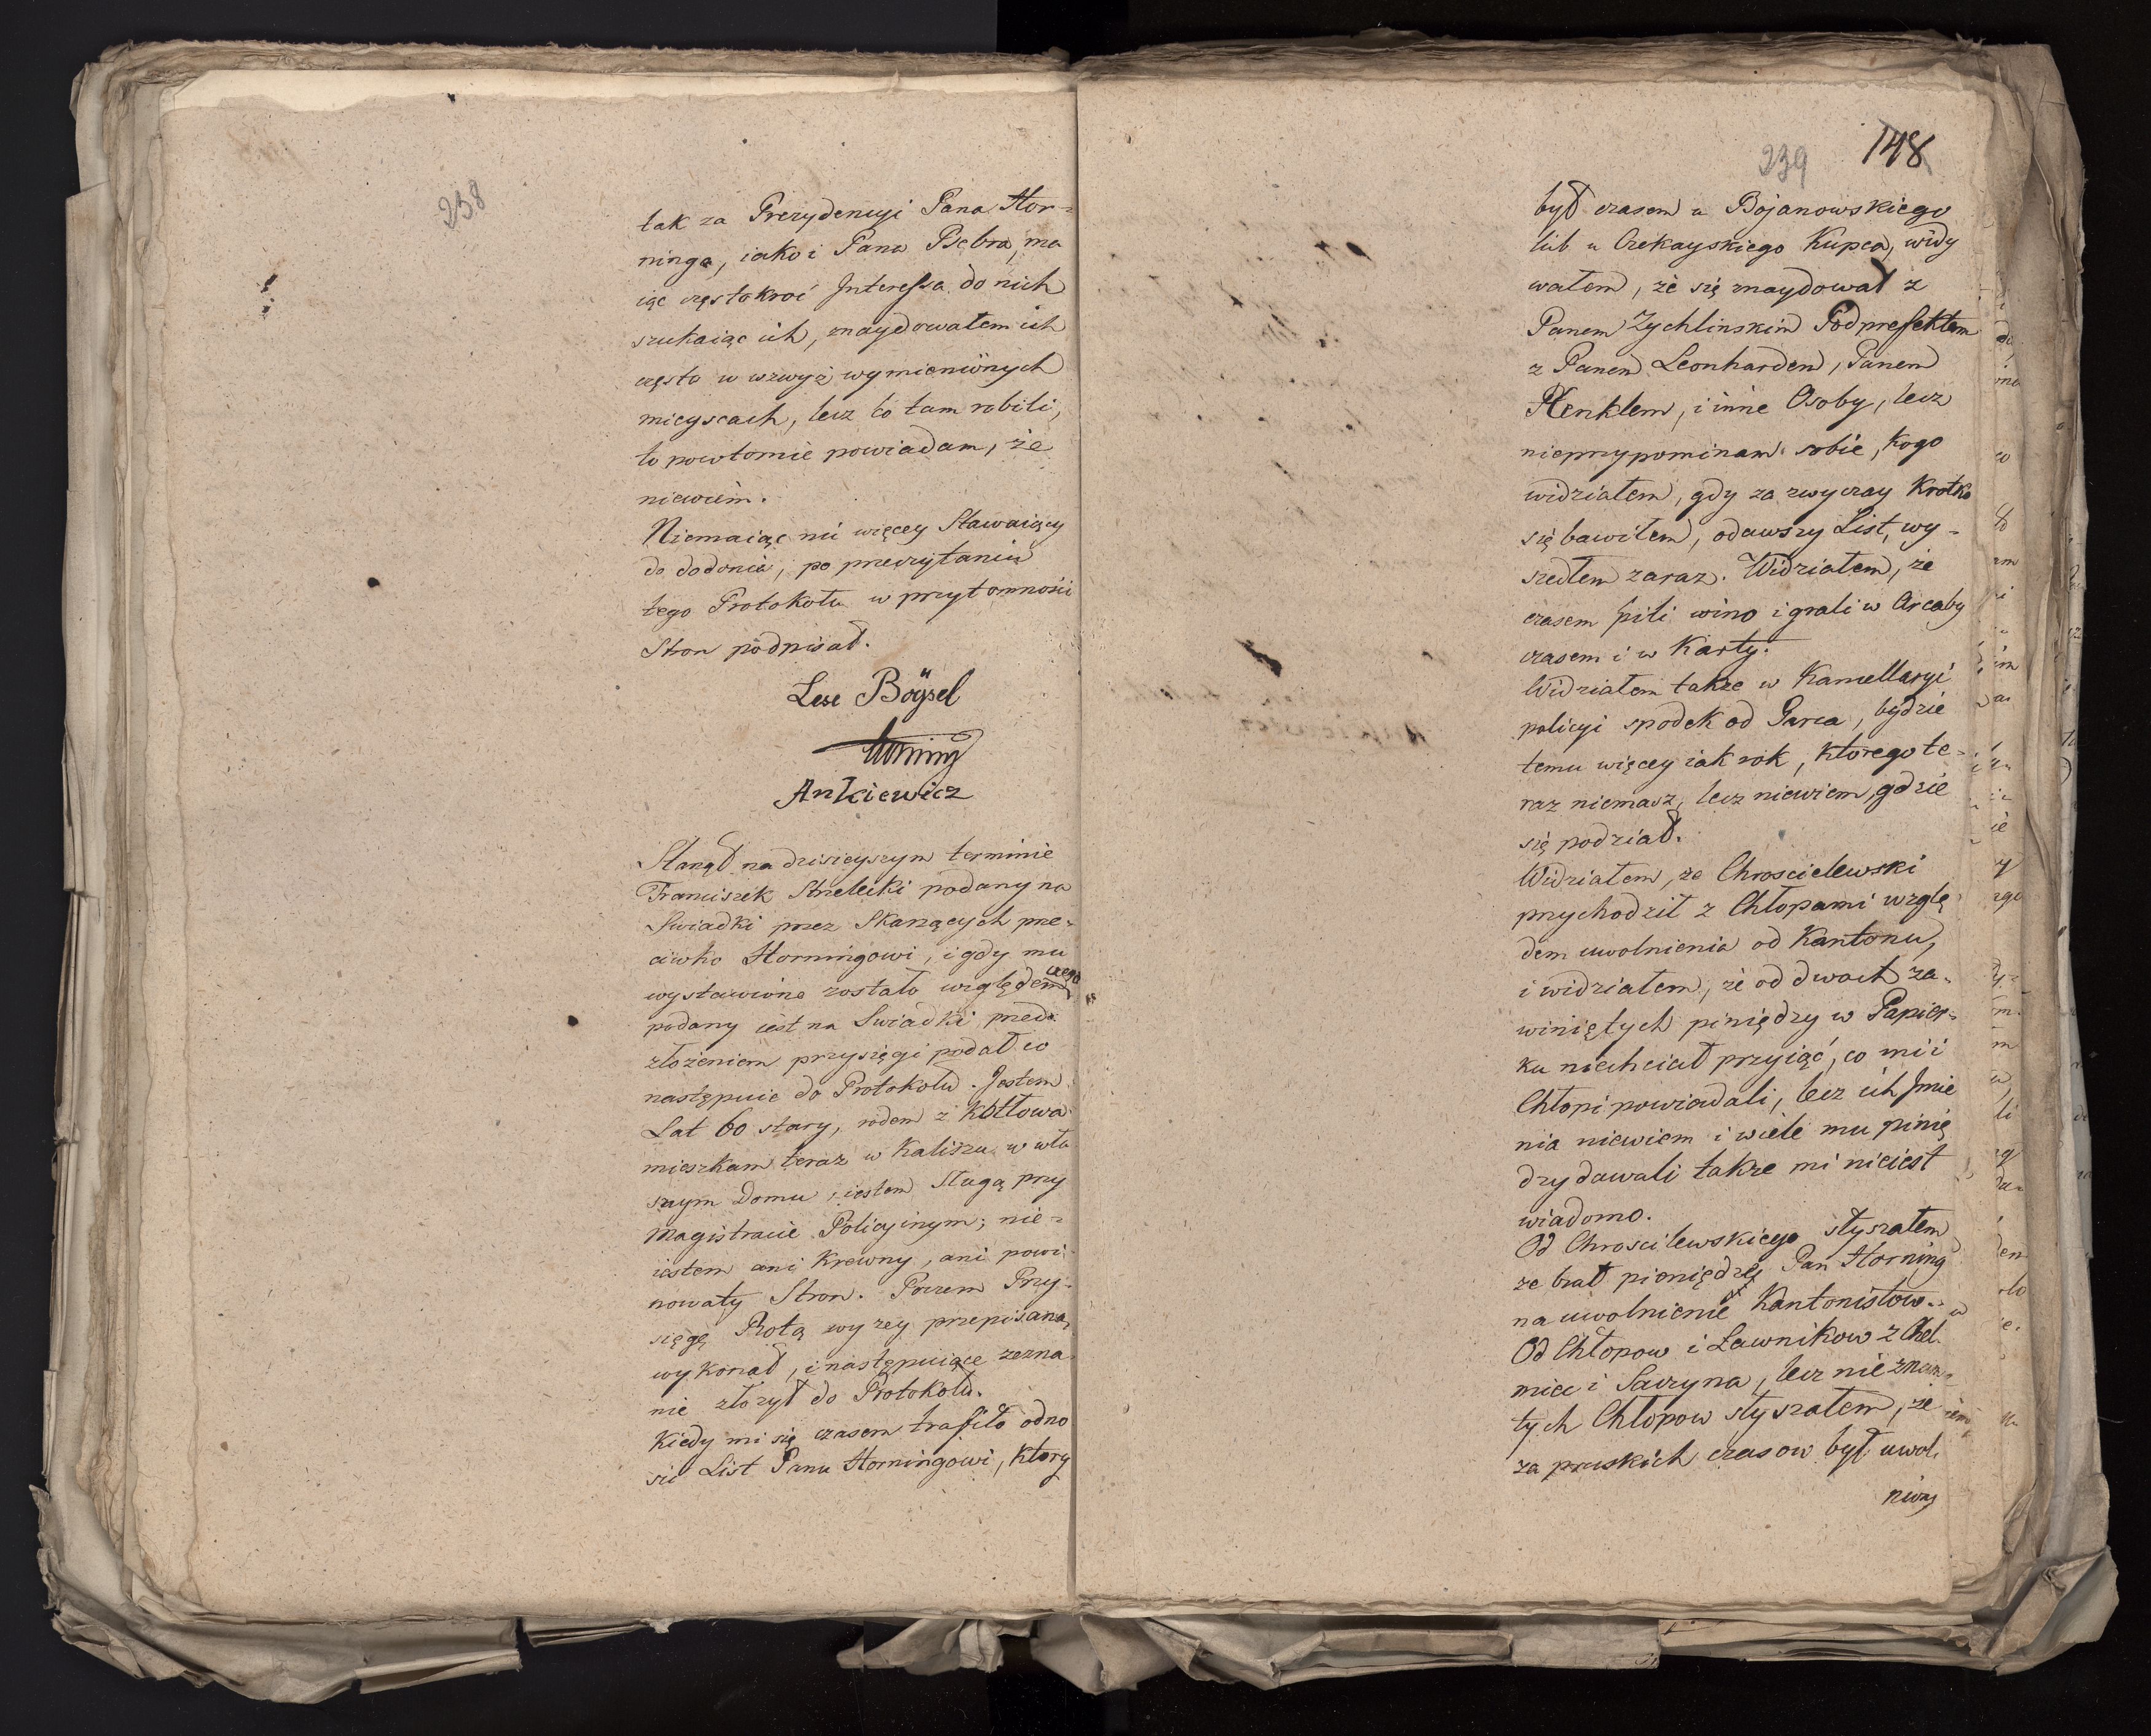 238
tak za Prezydencyi Pana Hor=
ninga, iako i Pana Psebra, ma
iąc częstokroć Interessa do nich
szukaiąc ich, znaydowałem ich
często w wzwyż wymienionych
mieyscach, lecz co tam robili,
to powtornie powiadam, że
niewiem.
Niemaiąc nic więcey Stawaiący
do dodania, po przeczytaniu
tego Protokołu w przytomności
Stron podpisał.
Lese Böÿsel
Horning
Ankiewicz
Stanął na dzisieyszym terminie
Franciszek Strzelecki podany na
Swiadki przez Skarzących prze=
ciwko Horningowi, i gdy mu
wystawione zostało względem czego
podany iest na Swiadki przed
złożeniem przysięgi podał co
następuie do Protokołu. Jestem
Lat 60 stary, rodem z Kotłowa
mieszkam teraz w Kaliszu w wła
snym Domu, iestem Sługą przy
Magistracie Policyinym; nie=
iestem ani Krewny, ani powi
nowaty Stron. Poczem Przy=
sięgę Rotą wyżey przepisaną
wykonał, i następuiące zezna
nie złożył do Protokołu.
Kiedy mi się czasem trafiło odno
sić List Panu Horningowi, ktory
239 148
był czasem u Bojanowskiego
lub u Czekayskiego Kupca, widy
wałem, że się znaydował z
Panem Zychlinskim Podprefektem
z Panem Leonhardem, Panem
Henklem, i inne Osoby, lecz
nieprzypominam sobie, kogo
widziałem, gdy za zwyczay Krotko
się bawiłem, odawszy List, wy=
szedłem zaraz. Widziałem, że
czasem pili wino i grali w Arcaby
czasem i w Karty.
Widziałem także w Kancellaryi
policyi spodek od Garca, będzie
temu więcey iak rok, ktorego te=
raz niemasz, lecz niewiem, gdzie
się podział.
Widziałem, że Chroscielewski
przychodził z Chłopami wzglę
dem uwolnienia od Kantonu,
i widziałem, że od dwoch za=
winiętych piniędzy w Papier=
ku niechciał przyiąć, co mi i
Chłopi powiadali, lecz ich Jmie
nia niewiem i wiele mu pinię
dzy dawali także mi nieiest
wiadomo.
Od Chroscilewskiego słyszałem
ze brał pieniędzy Pan Horning
na uwolnienie Kantonistow.
Od Chłopow i Ławnikow z Chel
mic i Saczyna, lecz nie znam
tych Chłopow słyszałem, że
za pruskich czasow był uwol.
niony